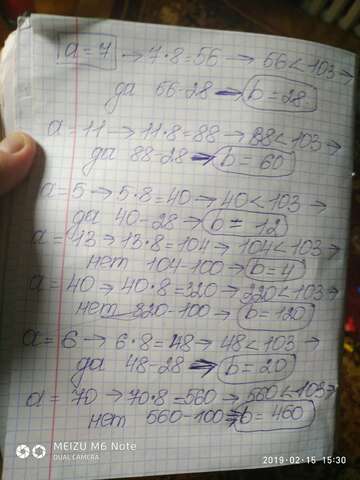 a = 7 → 7·8=56 → 56<103 →
да 56-28 → b = 28
a = 11 → 11·8=88 → 88<103 →
да 88-28 → b = 60
a = 5 → 5·8=40 → 40<103 →
да 40-28 → b = 12
a = 13 → 13·8=104 → 104<103 →
нет 104-100 → b = 4
a = 40 → 40·8=320 → 320<103 →
нет 820-100 → b = 120
a = 6 → 6·8=48 → 48<103 →
да 48-28 → b = 20
a = 70 → 70·8=560 → 560<103 →
нет 560-100 → b = 460
MEIZU M6 Note
DUAL CAMERA
2019-02-15 15:30